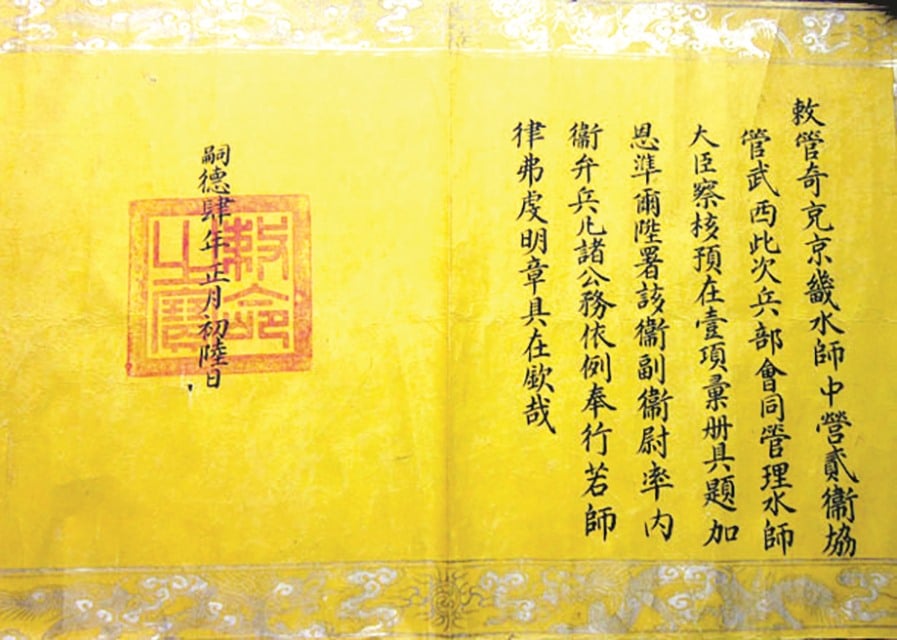 敕管奇充京畿水師中營貳衞協
管武西此次兵部會同管理水師
大臣察核預在壹項彙册具題加
恩準爾陞署該衞副衞尉率內
衞弁兵凡諸公務依例奉行若師
律弗虔明章具在欽哉
嗣德肆年正月初陸日
敕命之寶